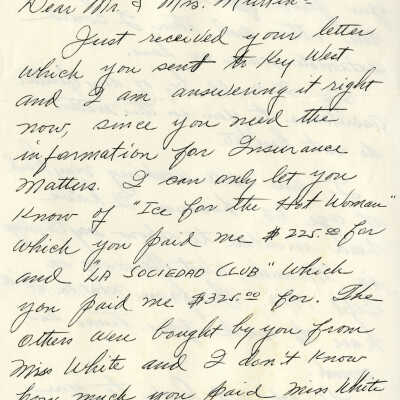 Dear Mr. & Mrs.
Just received your letter
which you sent to Key West
and I am answering it right
now, since you need the
information for Insurance
Matters. I can only let you
Know of "Ice for the Hot Woman"
which you paid me $225.00 for
and "LA SOCIEDAD CLUB" which
you paid me $325.00 for. The
others were bought by you from
Miss White and I don't know
how much you paid Miss White